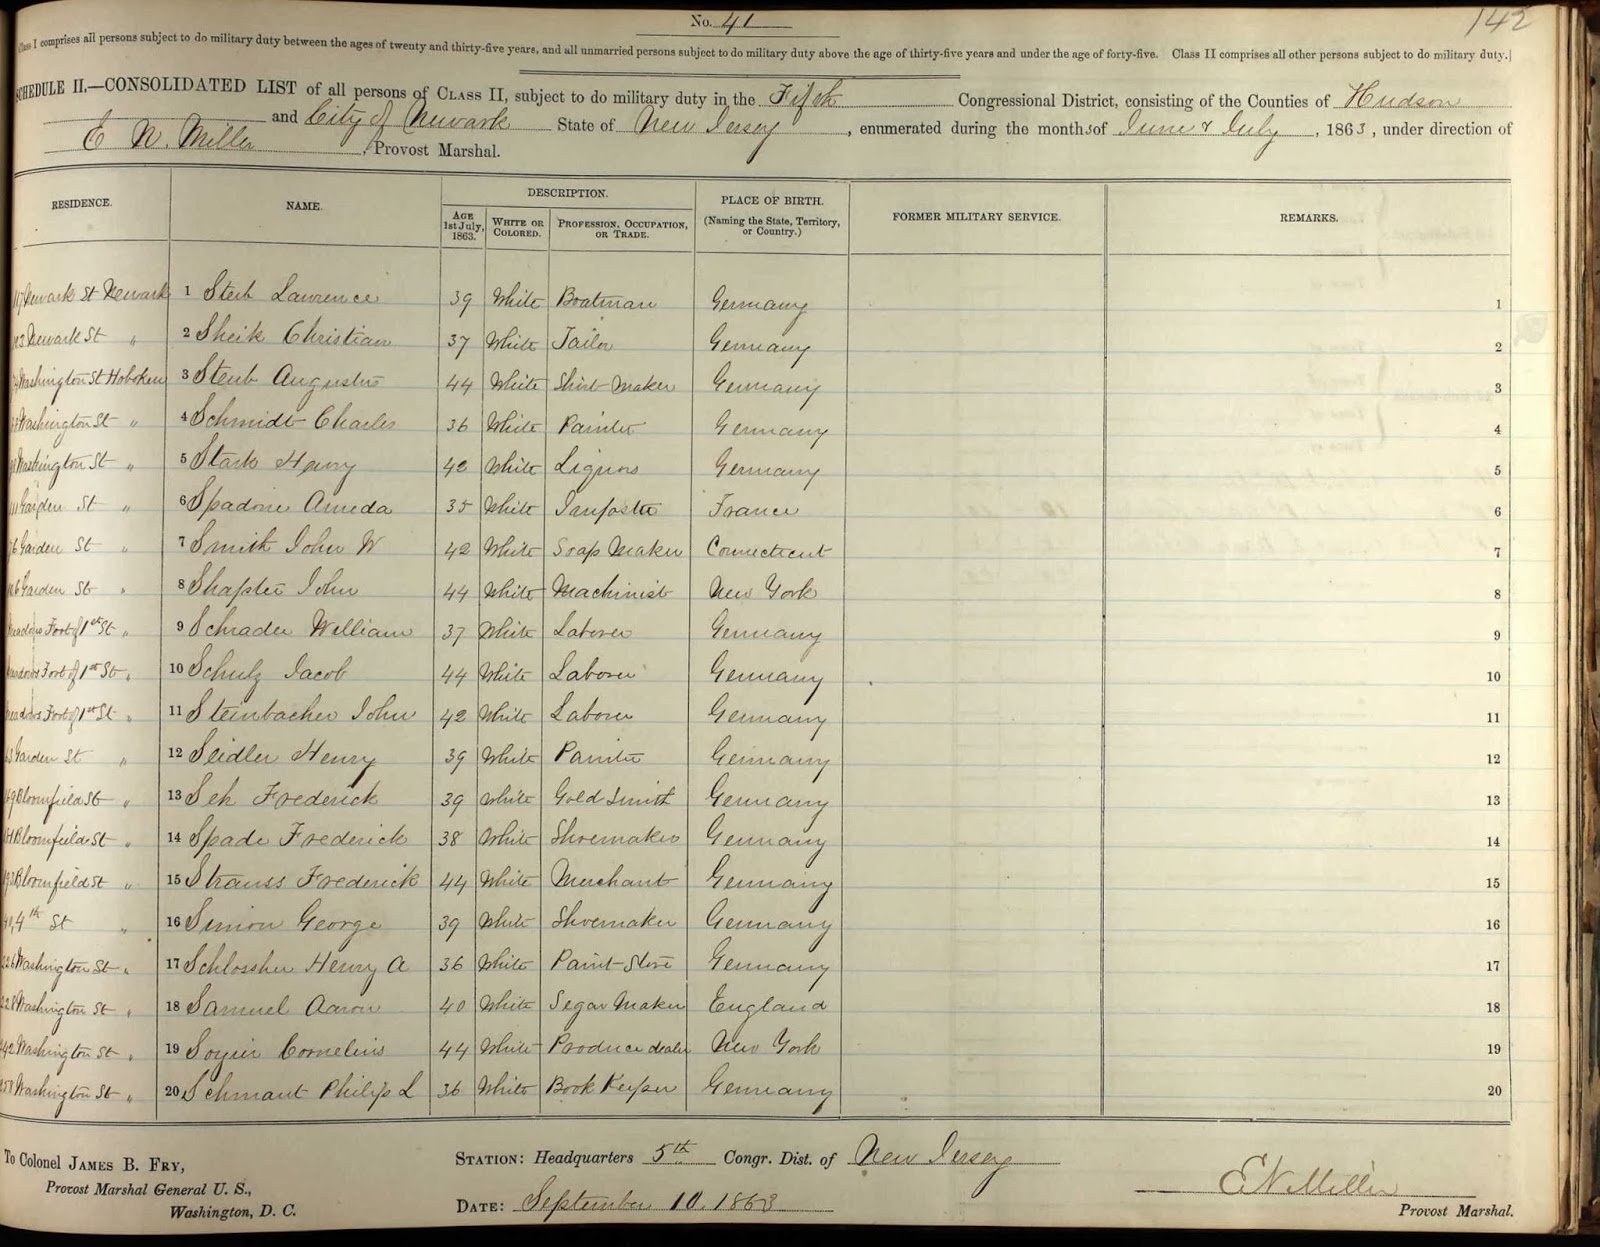 No. 41
142
Class I comprises all persons subject to do military duty between the ages of twenty and thirty-five years, and all unmarried persons subject to do military duty above the age of thirty-five years and under the age of forty-five. Class II comprises all other persons subject to do military duty.
SCHEDULE II.—CONSOLIDATED LIST of all persons of CLASS II, subject to do military duty in the Fifth Congressional District, consisting of the Counties of Hudson
and City of Newark State of New Jersey, enumerated during the months of June & July, 1863, under direction of
E N. Miller, Provost Marshal.
RESIDENCE. NAME. DESCRIPTION. PLACE OF BIRTH. FORMER MILITARY SERVICE. REMARKS.
AGE 1st July, 1863. WHITE OR COLORED. PROFESSION, OCCUPATION, OR TRADE. (Naming the State, Territory, or Country.)
Newark St Newark 1 Steib Lawrence 39 White Boatman Germany 1
Newark St " 2 Sheik Christian 37 White Tailor Germany 2
Washington St Hoboken 3 Steub Augustus 44 White Shirt Maker Germany 3
Washington St " 4 Schmidt Charles 36 White Painter Germany 4
Washington St " 5 Stark Henry 42 White Liquors Germany 5
Garden St " 6 Spadone Ameda 35 White France 6
Garden St " 7 Smith John W 42 White Soap Maker Connecticut 7
Garden St " 8 Shapter John 44 White Machinist New York 8
Meadows Foot of 1st St " 9 Schrader William 37 White Laborer Germany 9
Meadows Foot of 1st St " 10 Schulz Jacob 44 White Laborer Germany 10
Meadows Foot of 1st St " 11 Steinbacher John 42 White Laborer Germany 11
Garden St " 12 Seidler Henry 39 White Painter Germany 12
Bloomfield St " 13 Seh Frederick 39 White Gold Smith Germany 13
Bloomfield St " 14 Spade Frederick 38 White Shoemaker Germany 14
Bloomfield St " 15 Strauss Frederick 44 White Merchant Germany 15
4th St " 16 Simon George 39 White Shoemaker Germany 16
226 Washington St " 17 Schlossher Henry A 36 White Paint Store Germany 17
228 Washington St " 18 Samuel Aaron 40 White Segar Maker England 18
Washington St " 19 Cornelius 44 White Produce dealer New York 19
Washington St " 20 Schmaut Philip L 36 White Book Keeper Germany 20
To Colonel JAMES B. FRY,
Provost Marshal General U. S.,
Washington, D. C.
STATION: Headquarters 5th Congr. Dist. of New Jersey
DATE: September 10. 1863
E N Miller
Provost Marshal.